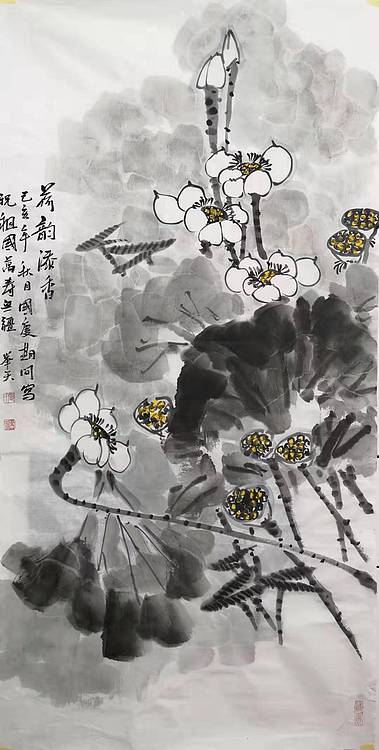 荷韵添香
己亥年秋日国庆期间写
祝祖國萬寿无疆 华天